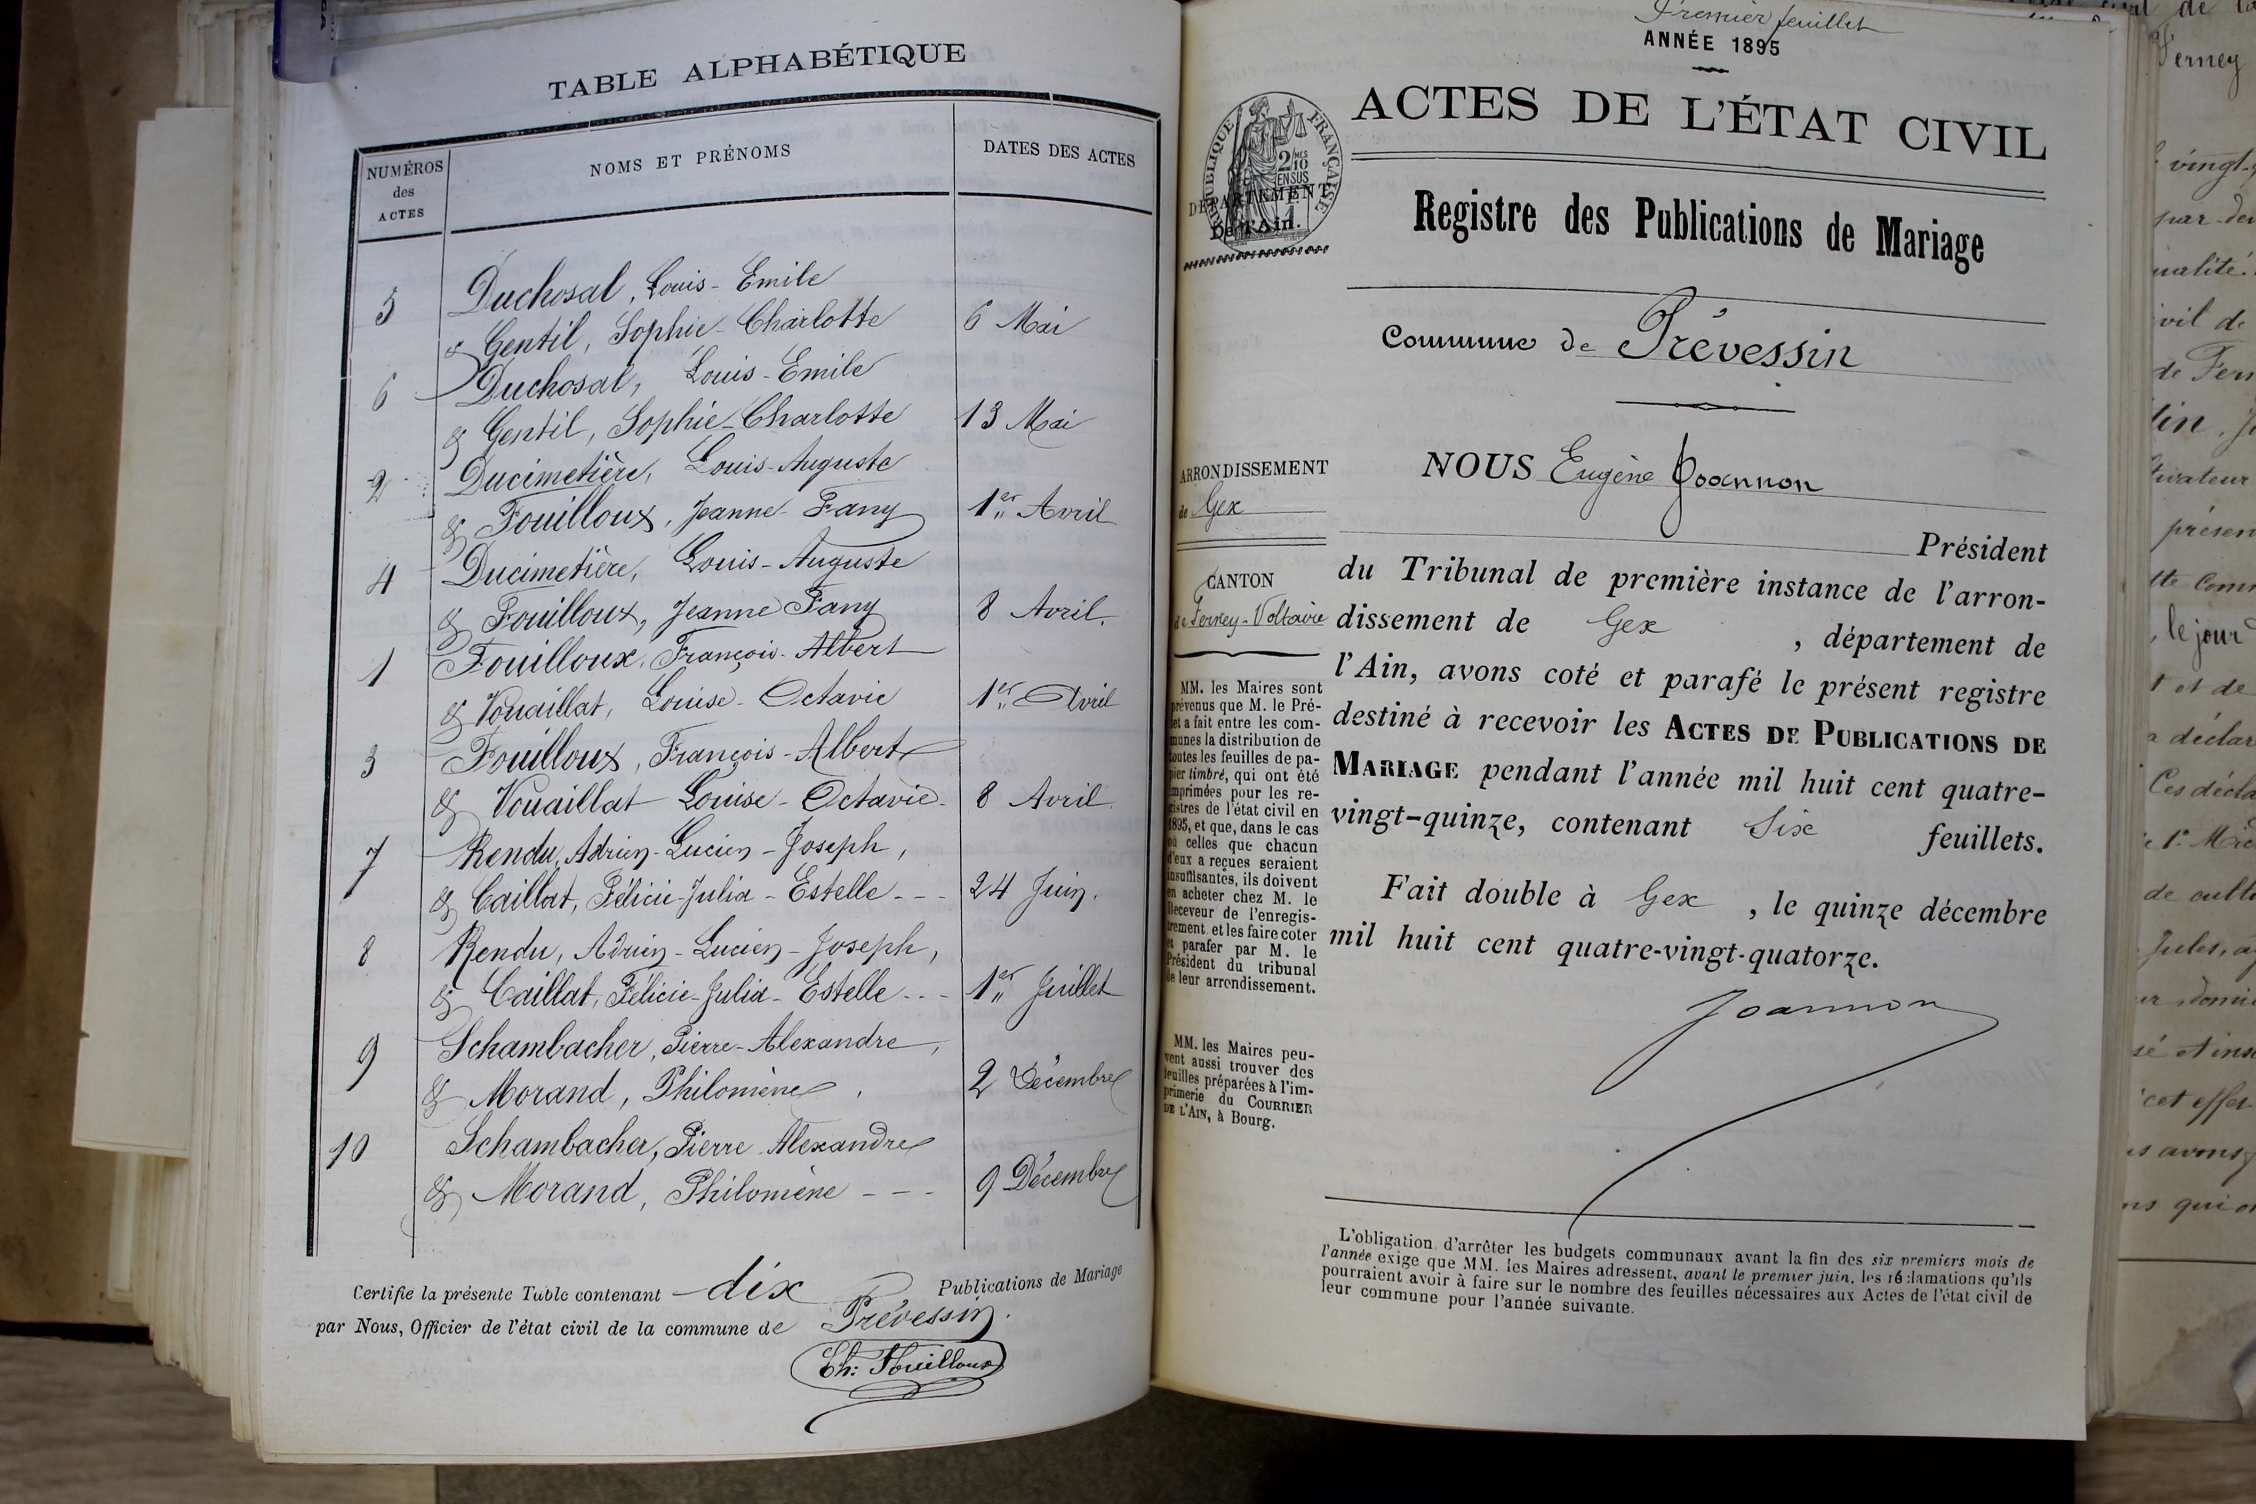 TABLE ALPHABÉTIQUE
NUMÉROS
des
ACTES
NOMS ET PRÉNOMS
DATES DES ACTES
5 Duchosal, Louis-Emile
& Gentil, Sophie-Charlotte 6 Mai
6 Duchosal, Louis-Emile
& Gentil, Sophie-Charlotte 13 Mai
2 Ducimetière, Louis-Auguste
& Fouilloux, Jeanne-Fany 1er Avril
4 Ducimetière, Louis-Auguste
& Fouilloux, Jeanne Fany 8 Avril.
1 Fouilloux, François-Albert
& Vouaillat, Louise-Octavie 1er Avril
3 Fouilloux, François-Albert
& Vouaillat Louise-Octavie- 8 Avril.
7 Rendu, Adrien-Lucien-Joseph,
& Caillat, Félicie-Julia-Estelle --- 24 Juin.
8 Rendu, Adrien-Lucien-Joseph,
& Caillat, Félicie-Julia-Estelle --- 1er Juillet
9 Schambacher, Pierre-Alexandre,
& Morand, Philomène, 2 Décembre
10 Schambacher, Pierre-Alexandre
& Morand, Philomène --- 9 Décembre
Certifie la présente Table contenant dix Publications de Mariage
par Nous, Officier de l'état civil de la commune de Prévessin.
Ch: Fouilloux
Premier feuillet
ANNÉE 1895
ACTES DE L'ÉTAT CIVIL
RÉPUBLIQUE FRANÇAISE
2 MES
10
EN SUS
DÉPARTEMENT
De l'Ain.
Registre des Publications de Mariage
Commune de Prévessin
ARRONDISSEMENT
de Gex
CANTON
de Ferney-Voltaire
MM. les Maires sont
prévenus que M. le Pré-
fet a fait entre les com-
munes la distribution de
toutes les feuilles de pa-
pier timbré, qui ont été
imprimées pour les re-
gistres de l'état civil en
1895, et que, dans le cas
où celles que chacun
d'eux a reçues seraient
insuffisantes, ils doivent
en acheter chez M. le
Receveur de l'enregis-
trement et les faire coter
et parafer par M. le
Président du tribunal
de leur arrondissement.
MM. les Maires peu-
vent aussi trouver des
feuilles préparées à l'im-
primerie du COURRIER
DE L'AIN, à Bourg.
NOUS Eugène Joannon
Président
du Tribunal de première instance de l'arron-
dissement de Gex, département de
l'Ain, avons coté et parafé le présent registre
destiné à recevoir les ACTES DE PUBLICATIONS DE
MARIAGE pendant l'année mil huit cent quatre-
vingt-quinze, contenant Six feuillets.
Fait double à Gex, le quinze décembre
mil huit cent quatre-vingt-quatorze.
Joannon
L'obligation d'arrêter les budgets communaux avant la fin des six premiers mois de
l'année exige que MM. les Maires adressent, avant le premier juin, les réclamations qu'ils
pourraient avoir à faire sur le nombre des feuilles nécessaires aux Actes de l'état civil de
leur commune pour l'année suivante.
Ferney
vingt-
par-dev
vil de
de Fern
tin, J
présen
tte comm
, le jour
t et de
a déclar
Ces décla
de cultu
Jules, a
cet effet
avons
ns qui o